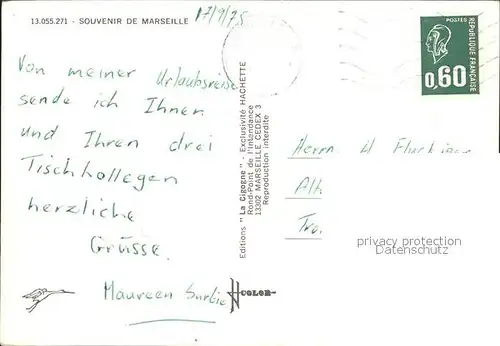 13.055.271 - SOUVENIR DE MARSEILLE
17/9/75
Von meiner Urlaubsreise
sende ich Ihnen
und Ihren drei
Tischkollegen
herzliche
Grüsse.
Maureen
Editions "La Cigogne" - Exclusivité HACHETTE
Rond-Point de l'Intendance
13302 MARSEILLE CEDEX 3
Reproduction interdite
COLOR
POSTES
REPUBLIQUE FRANÇAISE
0,60
Herrn
privacy protection
Datenschutz